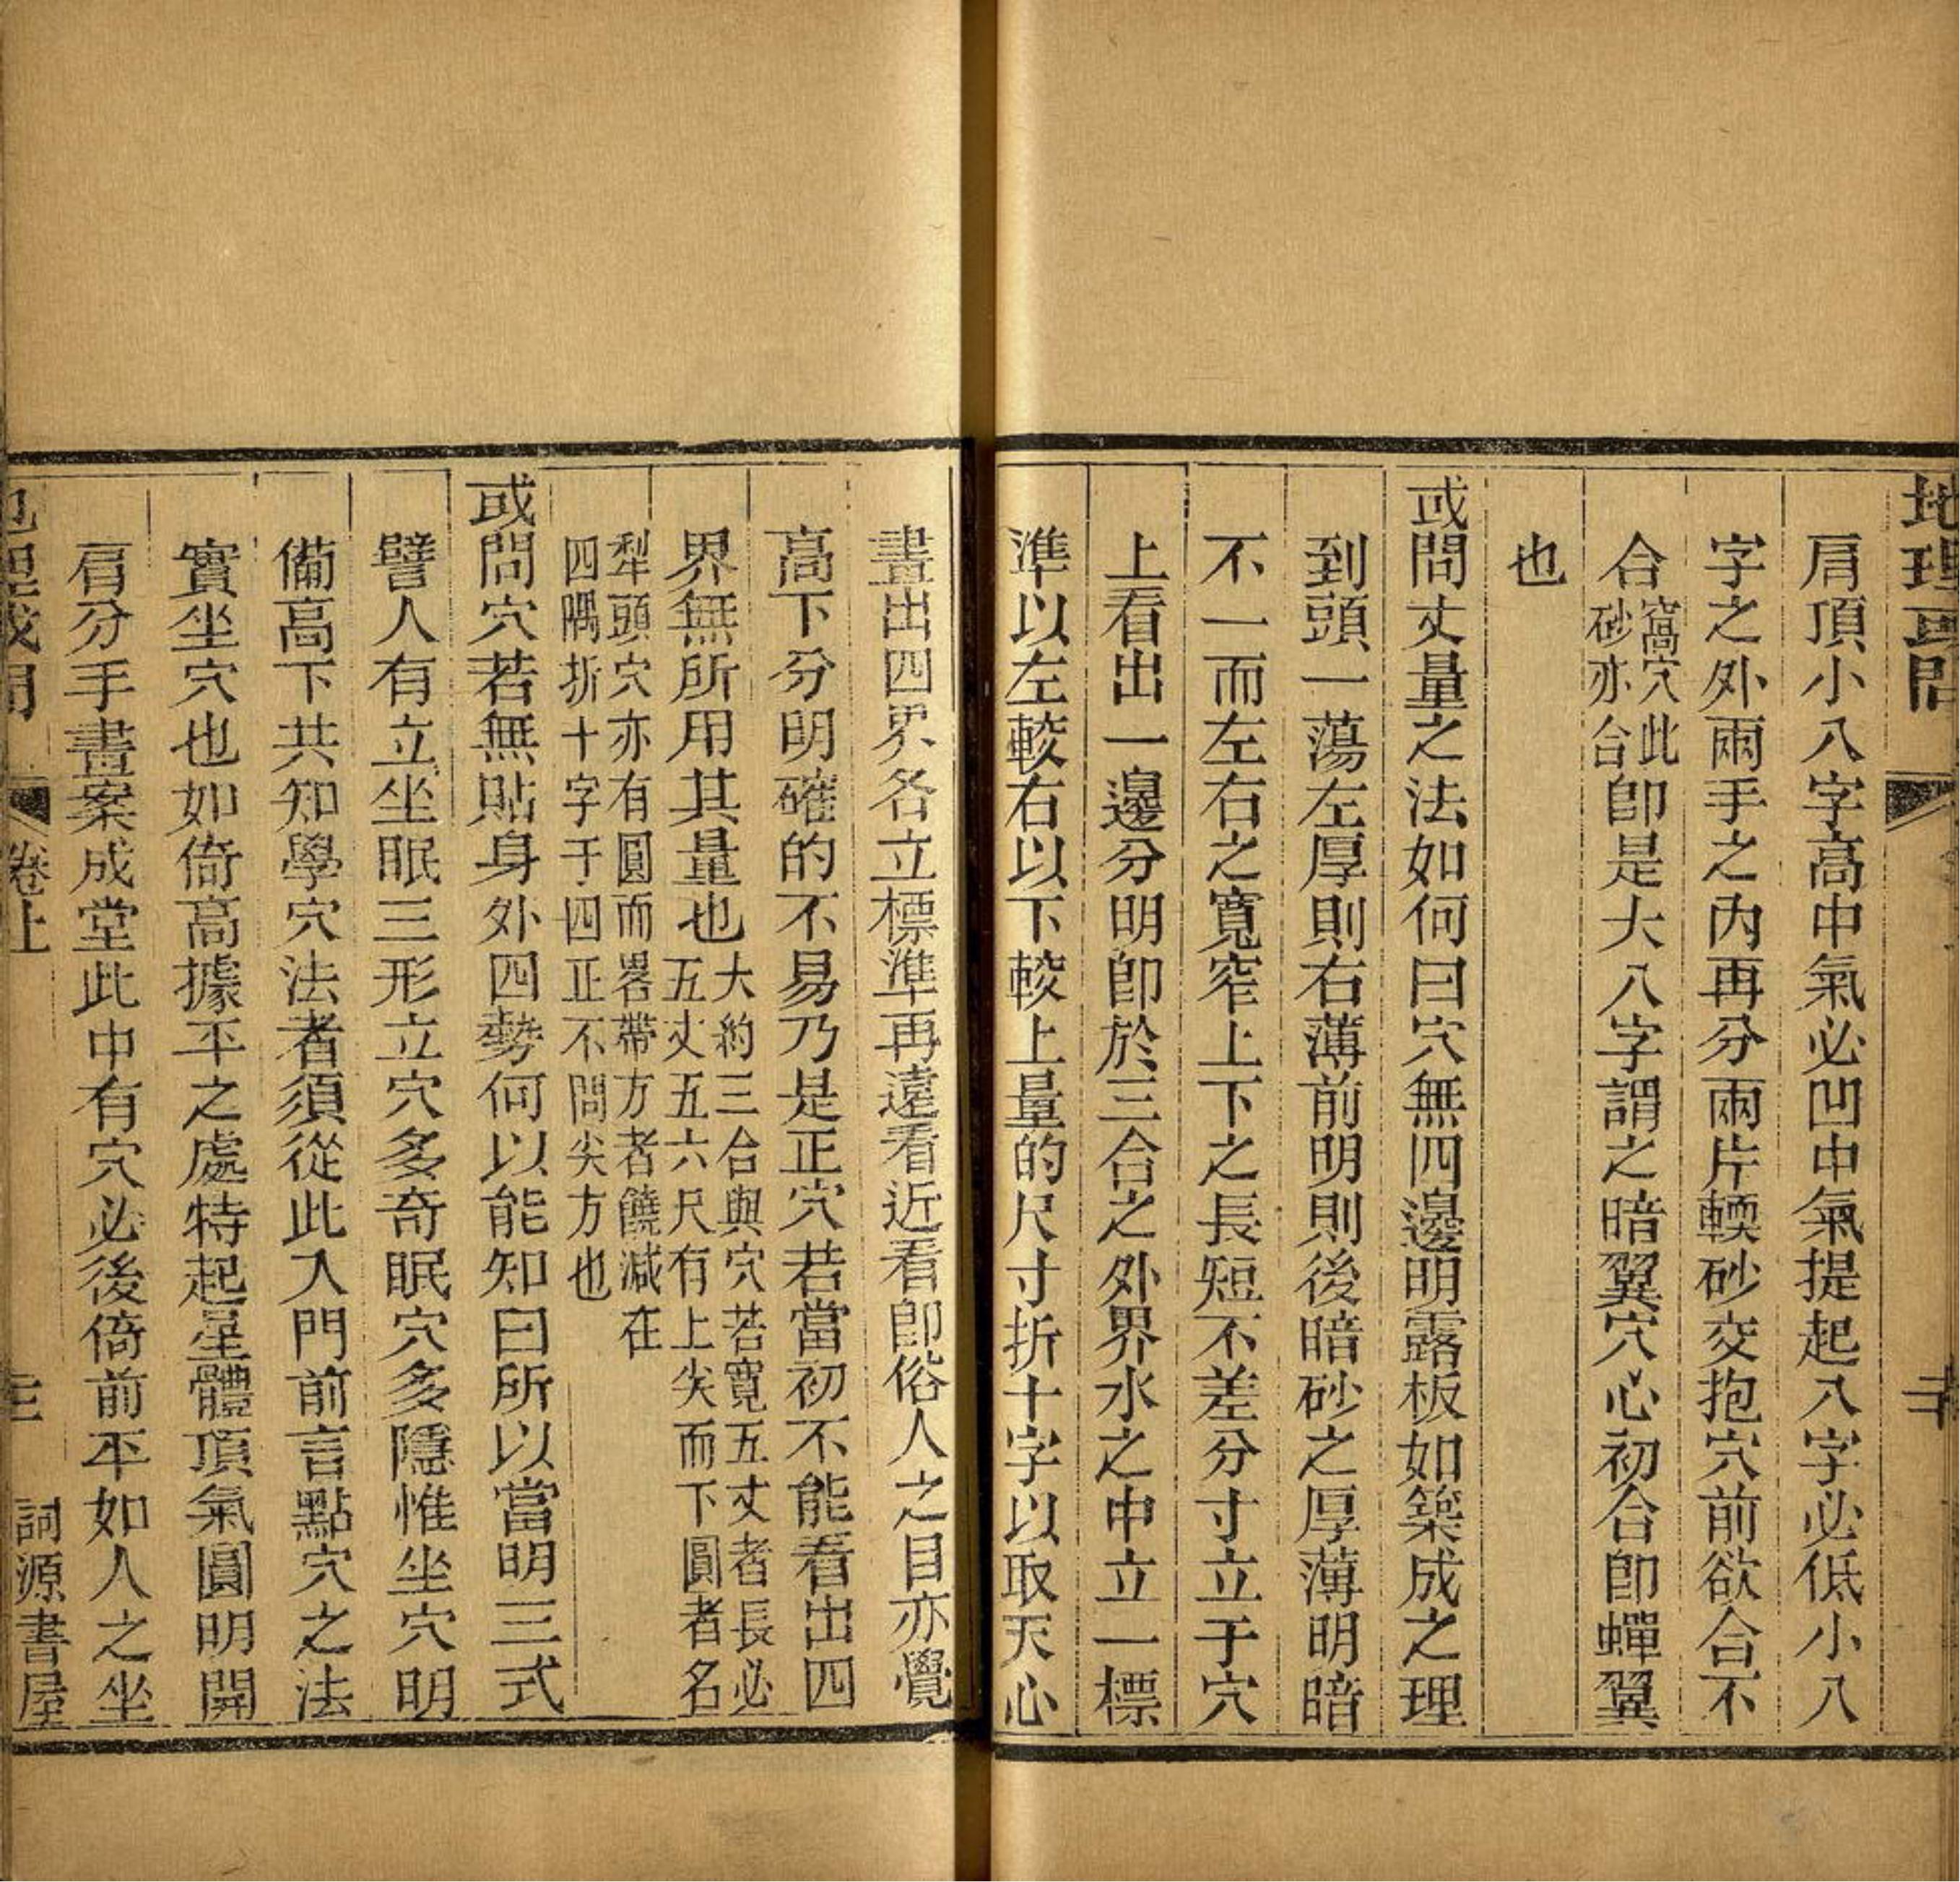 地理或問
二
肩頂小八字高中氣必凹中氣提起八字必低小八
字之外兩手之內再分兩片輭砂交抱穴前欲合不
合窩穴此砂亦合卽是大八字謂之暗翼穴心初合卽蟬翼
也
或問丈量之法如何曰穴無四邊明露板如築成之理
到頭一蕩左厚則右薄前明則後暗砂之厚薄明暗
不一而左右之寬窄上下之長短不差分寸立于穴
上看出一邊分明卽於三合之外界水之中立一標
準以左較右以下較上量的尺寸折十字以取天心
畫出四界各立標準再遠看近看卽俗人之目亦覺
高下分明確的不易乃是正穴若當初不能看出四
界無所用其量也大約三合與穴若寬五丈者長必五丈五六尺有上尖而下圓者名
犁頭穴亦有圓而畧帶方者饒減在四隅折十字于四正不問尖方也
或問穴若無貼身外四勢何以能知曰所以當明三式
譬人有立坐眠三形立穴多奇眠穴多隱惟坐穴明
備高下共知學穴法者須從此入門前言點穴之法
實坐穴也如倚高據平之處特起星體頂氣圓明開
肩分手畫案成堂此中有穴必後倚前平如人之坐
地理或問
卷上
三
詞源書屋